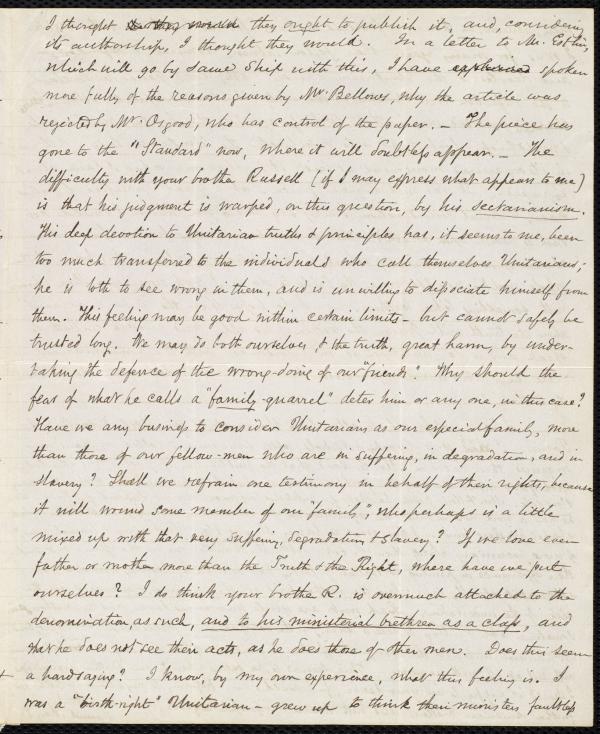 I thought they would they ought to publish it, and, considering
its authorship, I thought they would. In a letter to Mr. Estlin,
which will go by same ship with this, I have explained spoken
more fully of the reasons given by Mr. Bellows, why the article was
rejected by Mr. Osgood, who has control of the paper. – The piece has
gone to the "Standard" now, where it will doubtless appear. – The
difficulty with your brother Russell (if I may express what appears to me)
is that his judgment is warped, on this question, by his sectarianism.
His deep devotion to Unitarian truths & principles has, it seems to me, been
too much transferred to the individuals who call themselves Unitarians;–
he is loth to see wrong in them, and is unwilling to dissociate himself from
them. This feeling may be good within certain limits – but cannot safely be
trusted long. We may do both ourselves, & the truth, great harm, by under-
taking the defence of the wrong-doing of our "friends". Why should the
fear of what he calls a "family-quarrel" deter him or any one, in this case?
Have we any business to consider Unitarians as our especial family, more
than those of our fellow-men who are in suffering, in degradation, and in
slavery? Shall we refrain one testimony in behalf of their rights, because
it will wound some member of our "family", who perhaps is a little
mixed up with that very suffering, degradation & slavery? If we love even
father or mother more than the Truth & the Right, where have we put
ourselves? I do think your brother R. is overmuch attached to the
denomination, as such, and to his ministerial brethren as a class, and
that he does not see their acts, as he does those of other men. Does this seem
a hard saying? I know, by my own experience, what this feeling is. I
was a "birth-right" Unitarian – grew up to think their ministers faultless